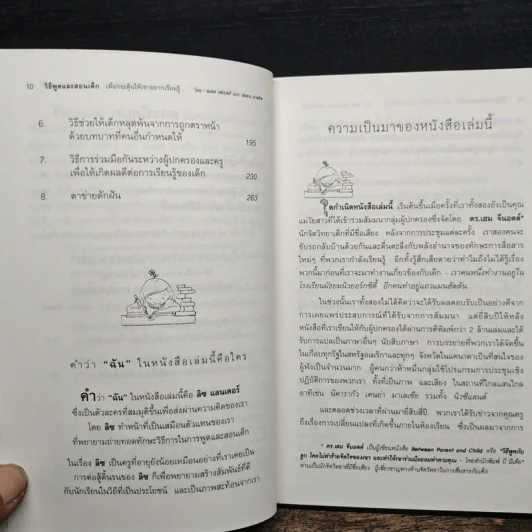 10 วิธีพูดและสอนเด็ก เพื่อกระตุ้นให้เขาอยากเรียนรู้
6. วิธีช่วยให้เด็กหลุดพ้นจากการถูกตราหน้า
ด้วยบทบาทที่คนอื่นกำหนดให้ 195
7. วิธีการร่วมมือกันระหว่างผู้ปกครองและครู
เพื่อให้เกิดผลดีต่อการเรียนรู้ของเด็ก 230
8. ตาข่ายดักฝัน 263
คำว่า “ฉัน” ในหนังสือเล่มนี้คือใคร
คำว่า “ฉัน” ในหนังสือเล่มนี้คือ ลิซ แลนเดอร์
ซึ่งเป็นตัวละครที่สมมุติขึ้นเพื่อส่งผ่านความคิดของเรา
โดย ลิซ ทำหน้าที่เป็นเสมือนตัวแทนของเรา
ที่พยายามถ่ายทอดทักษะวิธีการในการพูดและสอนเด็ก
ในเรื่อง ลิซ เป็นครูที่อายุยังน้อยเหมือนอย่างที่เราเคยเป็น
การต่อสู้ดิ้นรนของ ลิซ ก็เพื่อพยายามสร้างสัมพันธ์ที่ดี
กับนักเรียนในวิถีที่เป็นประโยชน์ และเป็นภาพสะท้อนจากเรา
ความเป็นมาของหนังสือเล่มนี้
จุดกำเนิดหนังสือเล่มนี้ เริ่มต้นขึ้นเมื่อครั้งที่เราทั้งสองยังเป็นคุณ
แม่วัยสาวที่ได้เข้าร่วมสัมมนากลุ่มผู้ปกครองซึ่งจัดโดย ดร.เฮม จีนอตต์*
นักจิตวิทยาเด็กที่มีชื่อเสียง หลังจากการประชุมแต่ละครั้ง เราสองคนจะ
ขับรถกลับบ้านด้วยกันและตื่นตะลึงกับพลังอำนาจของทักษะการสื่อสาร
ใหม่ๆ ที่พวกเรากำลังเรียนรู้ อีกทั้งรู้สึกเสียดายว่าทำไมถึงไม่ได้รู้เรื่อง
พวกนี้มาก่อนที่เราจะมาทำงานเกี่ยวข้องกับเด็ก - เราคนหนึ่งทำงานอยู่ใน
โรงเรียนมัธยมนิวยอร์กซิตี้ อีกคนทำอยู่แถวแมนฮัตตัน
ในช่วงนั้นเราทั้งสองไม่ได้คิดว่าจะได้รับผลตอบรับเป็นอย่างดีจาก
การเผยแพร่ประสบการณ์ที่ได้รับจากการสัมมนา แต่ยี่สิบปีให้หลัง
หนังสือที่เราเขียนให้กับผู้ปกครองได้ผ่านการตีพิมพ์กว่า 2 ล้านเล่มและได้
รับการแปลเป็นภาษาอื่นๆ นับสิบภาษา การบรรยายที่พวกเราได้จัดขึ้น
ในเกือบทุกรัฐในสหรัฐอเมริกาและทุกๆ จังหวัดในแคนาดาเป็นที่สนใจของ
ผู้ฟังเป็นจำนวนมาก ผู้คนกว่าห้าหมื่นกลุ่มใช้โปรแกรมการประชุมเชิง
ปฏิบัติการของพวกเรา ทั้งที่เป็นภาพ และเสียง ในสถานที่ไกลแสนไกล
อาทิเช่น นิคารากัว เคนย่า มาเลเซีย รวมทั้ง นิวซีแลนด์
และตลอดช่วงเวลาที่ผ่านมายี่สิบปี พวกเราได้รับข่าวจากคุณครู
ถึงเรื่องการเปลี่ยนแปลงที่เกิดขึ้นในห้องเรียน ซึ่งเป็นผลมาจากการ
* ดร.เฮม จีนอตต์ เป็นผู้เขียนหนังสือ Between Parent and Child หรือ